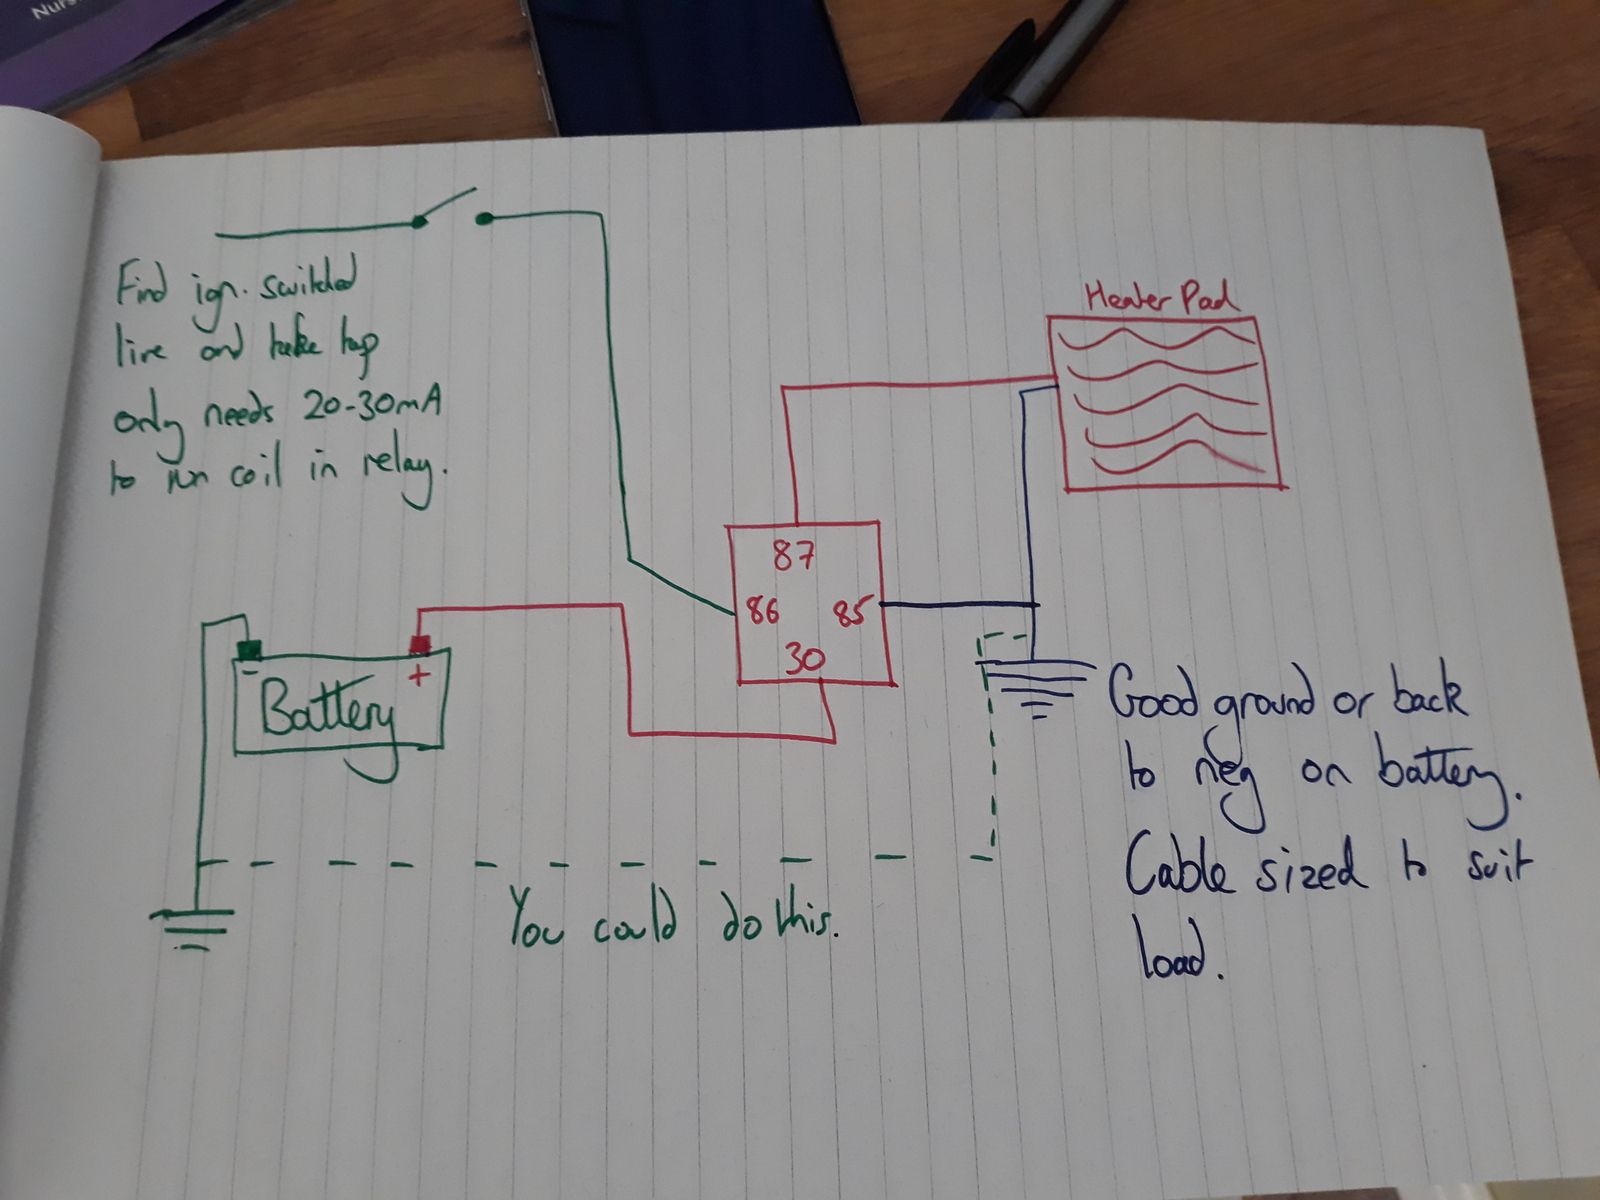 Nurs
Find ign. switched
live and take tap
only needs 20-30mA
to run coil in relay.
Heater Pad
87
86 85
30
- +
Battery
Good ground or back
to neg on battery.
Cable sized to suit
load.
You could do this.